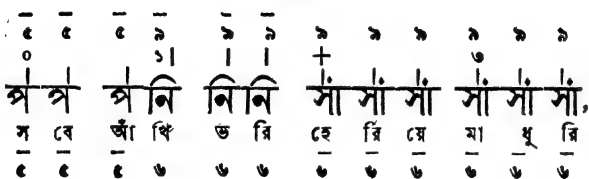 ৫ ৫ ৫ ৯ ৯ ৯ ৯ ৯ ৯ ৯ ৯ ৯
০ ১। । । + ৩
র্প র্প র্প নি নি নি র্সা র্সা র্সা র্সা র্সা র্সা,
স বে আঁ খি ভ রি হে রি য়ে মা ধু রি
৫ ৫ ৫ ৬ ৬ ৬ ৬ ৬ ৬ ৬ ৬ ৬